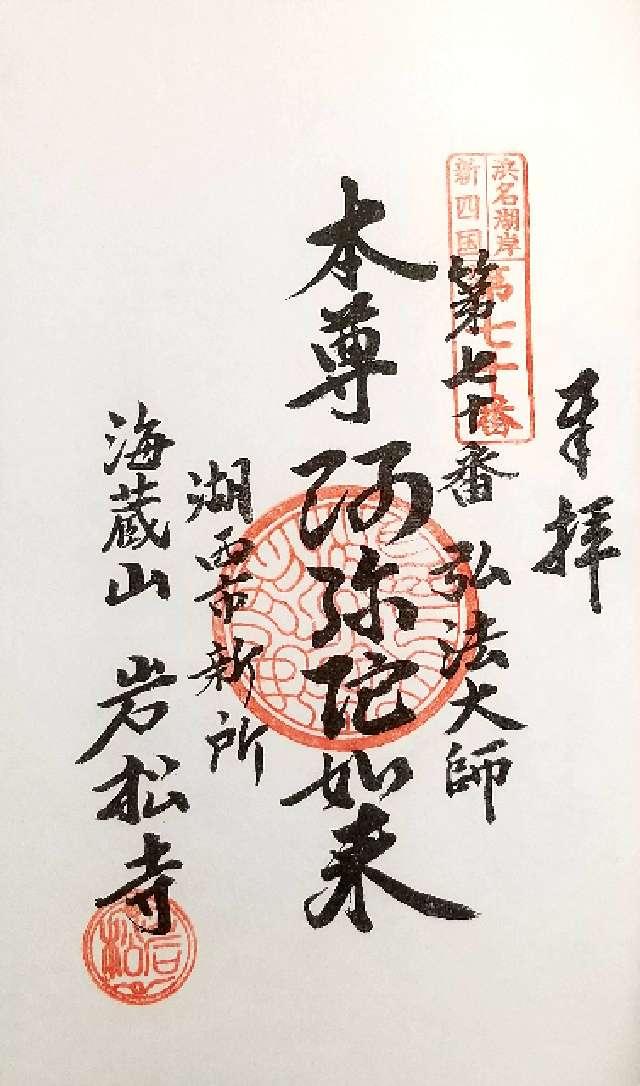 奉拝
浜名湖岸
新四国
第七十番
第七十番 弘法大師
本尊 阿弥陀如来
湖西市新所
海蔵山 岩松寺